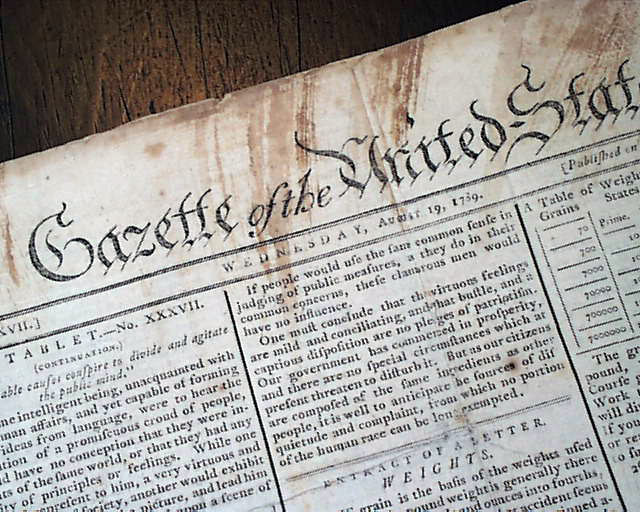 Gazette of the United Stat
[Publiſhed on
WEDNESDAY, August 19, 1789.
XVII.]
TABLET.—No. XXXVII.
(CONTINUATION.)
able cauſes conſpire to divide and agitate
the public mind."
intelligent being, unacquainted with
man affairs, and yet capable of forming
ideas from language, were to hear the
tion of a promiſcuous croud of people,
d have no conception that they were in-
ts of the ſame world, or that they had any
ity of principles or feelings. While one
repreſent to him, a very virtuous and
ſociety, another would exhibit
a picture, and lead him
upon a ſcene of
If people would uſe the ſame common ſenſe in
judging of public meaſures, as they do in their
common concerns, theſe clamorous men would
have no influence.
One muſt conclude that the virtuous feelings
are mild and conciliating, and that buſtle, and a
captious diſpoſition are no pledges of patriotiſm.
Our government has commenced in proſperity,
and there are no ſpecial circumſtances which at
preſent threaten to diſturb it. But as our citizens
are compoſed of the ſame ingredients as other
people, it is well to anticipate the ſources of diſ
quietude and complaint, from which no portion
of the human race can be long exempted.
EXTRACT OF A LETTER.
WEIGHTS.
grain is the baſis of the weights uſed
pound weight is generally there
and ounces into fourths,
or accident ſeem
A Table of Weigh
Grains State
Prime.
70
70
700
7000
70000
700000
7000000
The g
pound,
Courſe
Work
will di
if you
or m